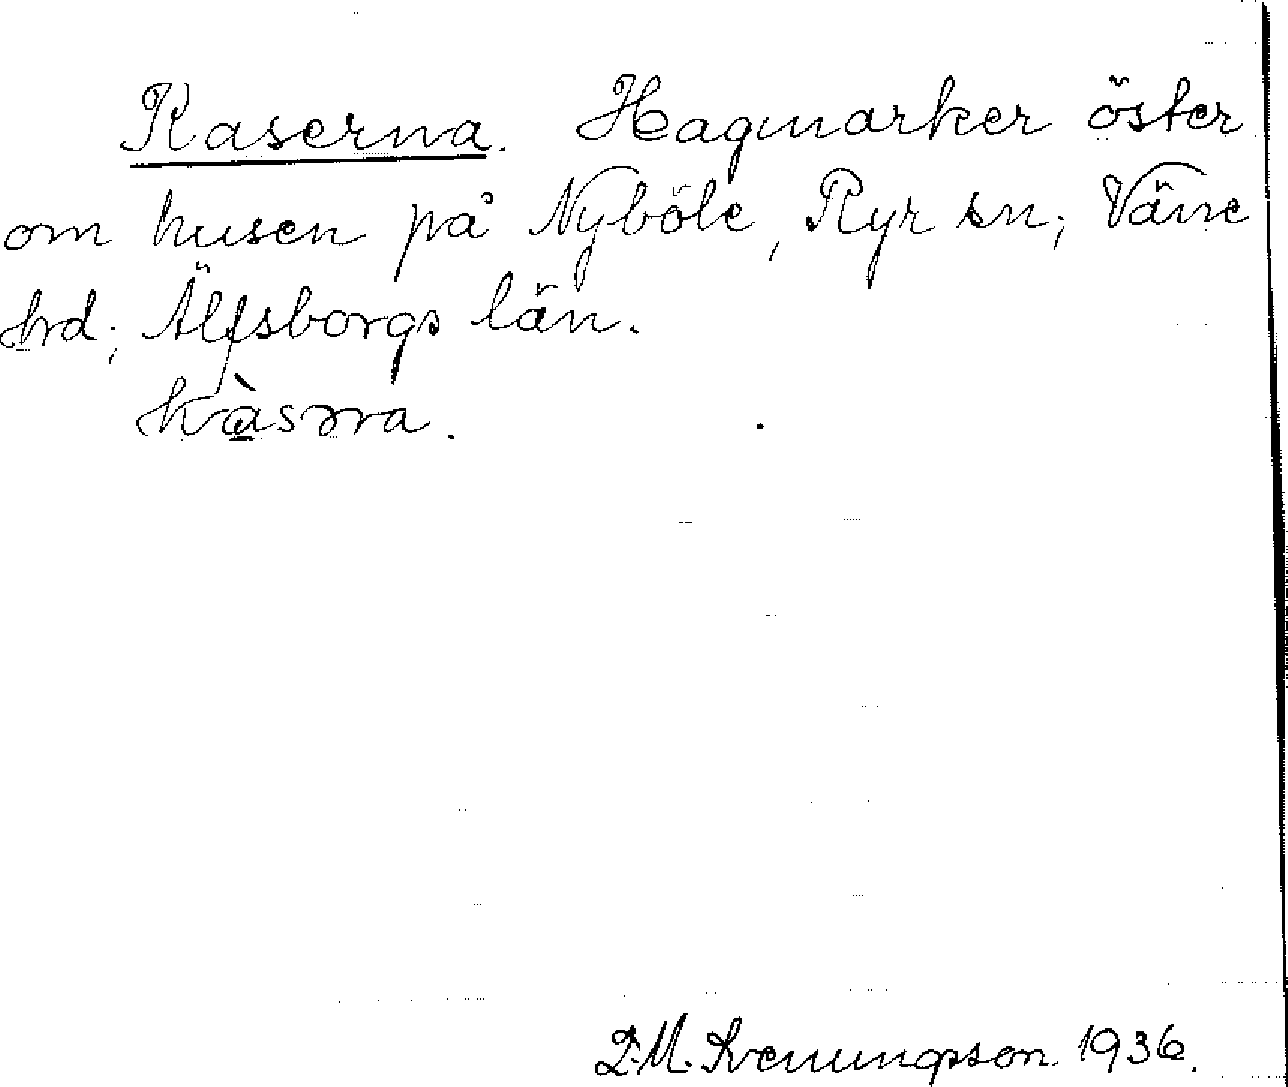 Kaserna. Hagmarker öster
om husen på Nyböle, Ryr sn; Väne
hrd; Älfsborgs län.
kàsəra.
D.M. Svenungsson 1936.